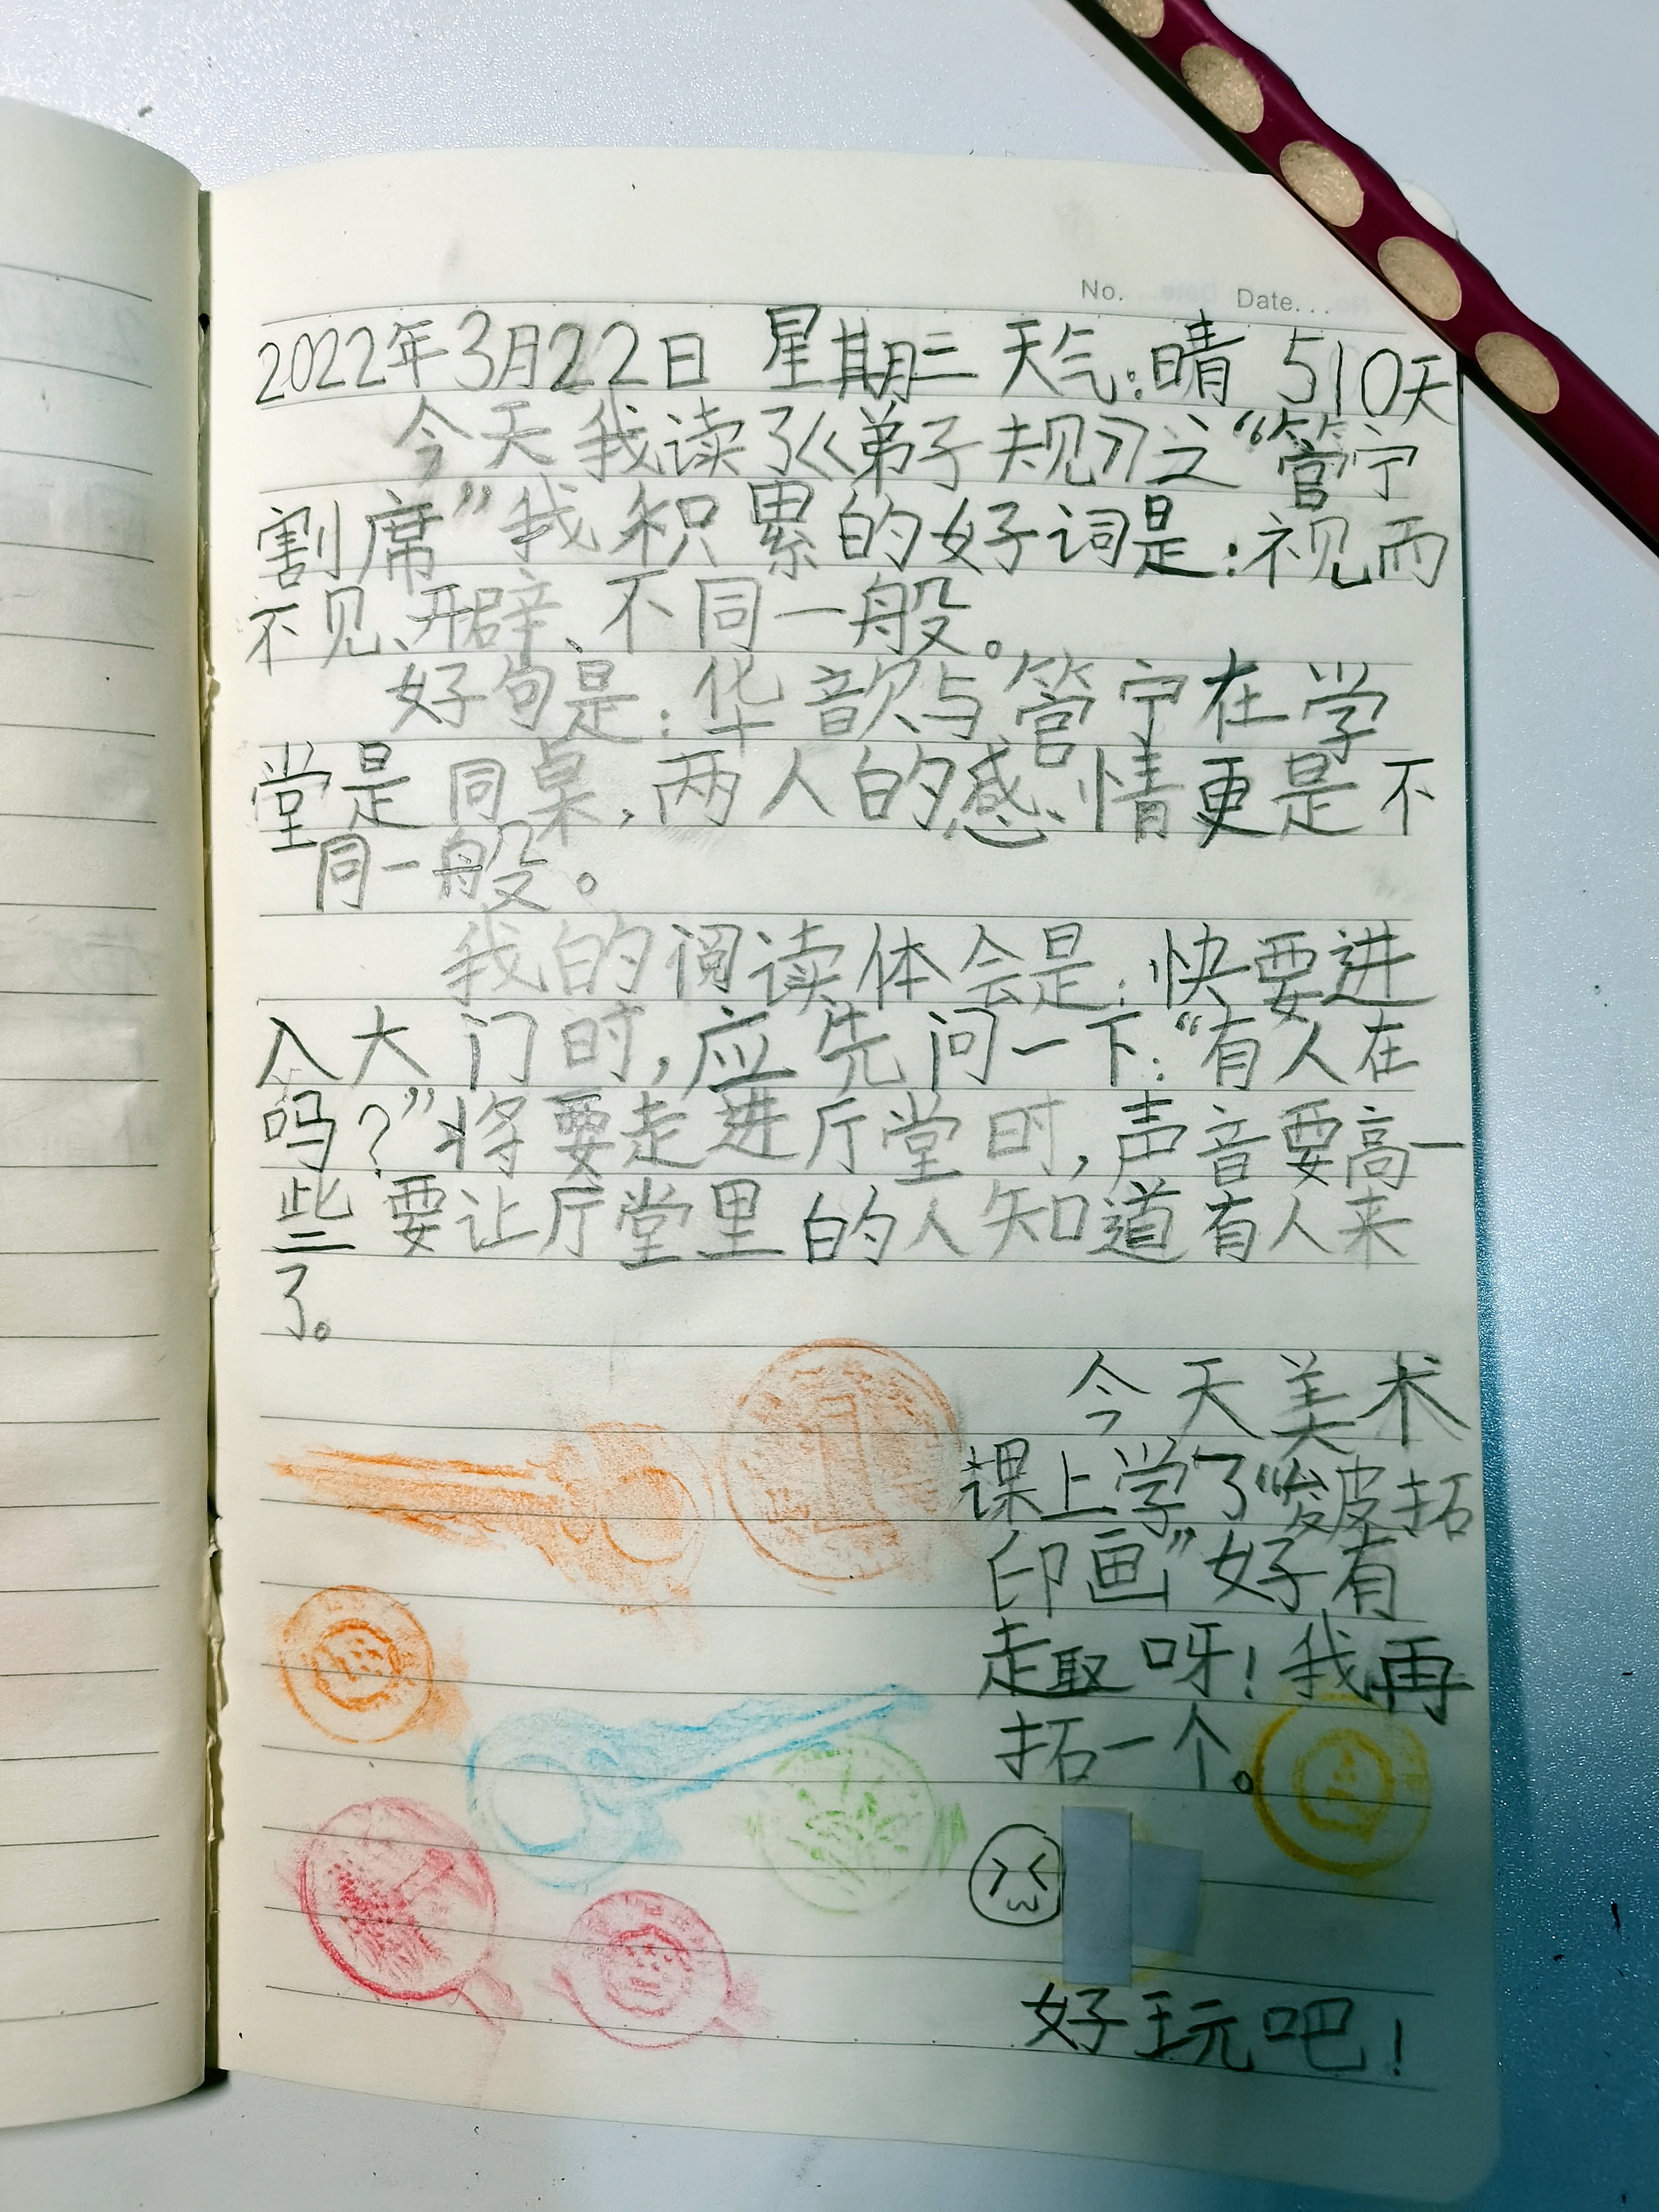 No. Date...
2022年3月22日 星期三 天气:晴 510天
今天我读了《弟子规》之“管宁
割席”我积累的好词是:视而
不见、开辟、不同一般。
好句是:华歆与管宁在学
堂是同桌,两人的感情更是不
同一般。
我的阅读体会是:快要进
入大门时,应先问一下:“有人在
吗?”将要走进厅堂时,声音要高一
些要让厅堂里的人知道有人来
了。
今天美术
课上学了“皴拓
印画”好有
趣呀!我再
拓一个。
好玩吧!